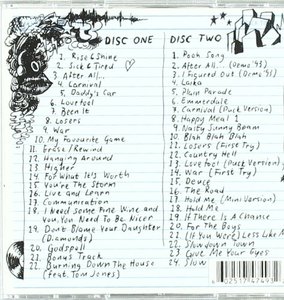 DISC ONE
1. Rise & Shine
2. Sick & Tired
3. After All...
4. Carnival
5. Daddy's Car
6. Lovefool
7. Been It
8. Losers
9. War
10. My Favourite Game
11. Erase/Rewind
12. Hanging Around
13. Higher
14. For What It's Worth
15. You're The Storm
16. Live and Learn
17. Communication
18. I Need Some Fine Wine and
you, You Need To Be Nicer
19. Don't Blame Your Daughter
(Diamonds)
20. Godspell
21. Bonus Track
22. Burning Down The House
(feat. Tom Jones)
DISC TWO
1. Pooh Song
2. After All... (Demo '93)
3. I Figured Out (Demo '93)
4. Laika
5. Plain Parade
6. Emmerdale
7. Carnival (Puck Version)
8. Happy Meal I
9. Nasty Sunny Beam
10. Blah Blah Blah
11. Losers (First Try)
12. Country Hell
13. Lovefool (Puck Version)
14. War (First Try)
15. Deuce
16. The Road
17. Hold Me (Mini Version)
18. Hold Me
19. If There Is A Chanse
20. For The Boys
21. (If You Were) Less Like M
22. Slowdown Town
23. Give Me Your Eyes
24. Slow
6 02517 47693